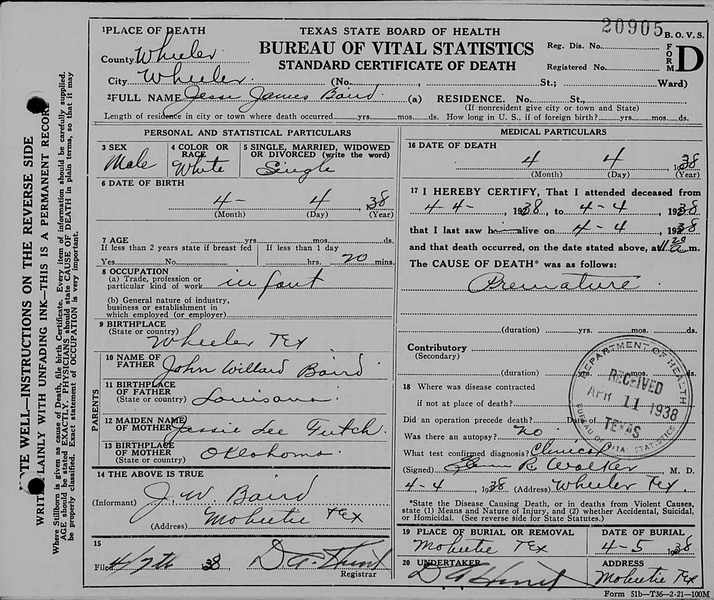 20905 B. O. V. S.
1 PLACE OF DEATH
TEXAS STATE BOARD OF HEALTH
County Wheeler
BUREAU OF VITAL STATISTICS
Reg. Dis. No.
FORM D
STANDARD CERTIFICATE OF DEATH
Registered No.
City Wheeler (No. , St.; Ward)
2 FULL NAME James Baird (a) RESIDENCE. No. St.,
(If nonresident give city or town and State)
Length of residence in city or town where death occurred yrs. mos. ds. How long in U. S., if of foreign birth? yrs. mos. ds.
PERSONAL AND STATISTICAL PARTICULARS
3 SEX
Male
4 COLOR OR RACE
White
5 SINGLE, MARRIED, WIDOWED
OR DIVORCED (write the word)
Single
6 DATE OF BIRTH
4- 4 38
(Month) (Day) (Year)
7 AGE yrs. mos. ds.
If less than 2 years state if breast fed
If less than 1 day
Yes No hrs. 20 mins.
8 OCCUPATION
(a) Trade, profession or
particular kind of work infant
(b) General nature of industry,
business or establishment in
which employed (or employer)
9 BIRTHPLACE
(State or country) Wheeler Tex
PARENTS
10 NAME OF
FATHER John Willard Baird
11 BIRTHPLACE
OF FATHER
(State or country) Louisana
12 MAIDEN NAME
OF MOTHER Jessie Lee
13 BIRTHPLACE
OF MOTHER
(State or country) Oklahoma
14 THE ABOVE IS TRUE
(Informant) J. W. Baird
(Address) Mobeetie Tex
15
Filed 4/7th 38 D A Hunt
Registrar
MEDICAL PARTICULARS
16 DATE OF DEATH
4 4 1938
(Month) (Day) (Year)
17 I HEREBY CERTIFY, That I attended deceased from
4-4-, 1938, to 4-4, 1938
that I last saw h alive on 4-4, 1938
and that death occurred, on the date stated above, at m.
The CAUSE OF DEATH* was as follows:
Premature
(duration) yrs. mos. ds.
Contributory
(Secondary)
(duration) mos. ds.
18 Where was disease contracted
if not at place of death?
Did an operation precede death? Date of
Was there an autopsy? no
What test confirmed diagnosis? Clinical
(Signed) Glenn R Walker M. D.
4-4, 1938 (Address) Wheeler Tex
*State the Disease Causing Death, or in deaths from Violent Causes,
state (1) Means and Nature of Injury, and (2) whether Accidental, Suicidal,
or Homicidal. (See reverse side for State Statutes.)
19 PLACE OF BURIAL OR REMOVAL
Mobeetie Tex
DATE OF BURIAL
4-5 1938
20 UNDERTAKER
D A Hunt
ADDRESS
Mobeetie Tex
Form 51b—T36—2-21—100M
DEPARTMENT OF HEALTH
RECEIVED
APR 11 1938
TEXAS
BUREAU OF VITAL STATISTICS
WELL—INSTRUCTIONS ON THE REVERSE SIDE
WRITE PLAINLY WITH UNFADING INK—THIS IS A PERMANENT RECORD
Where Stillborn is given as cause of Death, file birth Certificate. Every item of information should be carefully supplied.
AGE should be stated EXACTLY. PHYSICIANS should state CAUSE OF DEATH in plain terms, so that it may
be properly classified. Exact statement of OCCUPATION is very important.